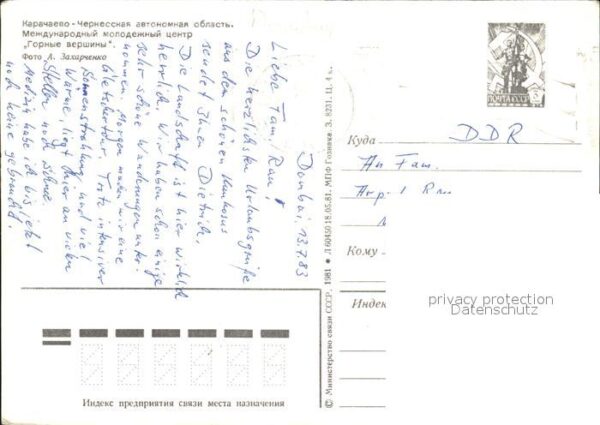 Карачаево-Черкесская автономная область.
Международный молодежный центр
„Горные вершины".
Фото А. Захарченко
Dombai, 13.7.83
Liebe Fam. Rau!
Die herzlichsten Urlaubsgrüße
aus dem schönen Kaukasus
sendet Ihnen Dietrich.
Die Landschaft ist hier wirklich
herrlich. Wir haben schon einige
sehr schöne Wanderungen unter-
nommen. Morgen machen wir eine
Gletschertour. Trotz intensiver
Sonnenstrahlung und viel
Wärme, liegt hier an vielen
Stellen noch Schnee.
Medizin habe ich bis jetzt
noch keine gebraucht.
ПОЧТА СССР
Куда
DDR
An Fam.
Кому
Индек
privacy protection
Datenschutz
© Министерство связи СССР, 1981 ★ Л 60450 18.05.81. МПФ Гознака. З. 8231. Ц. 4 к.
Индекс предприятия связи места назначения